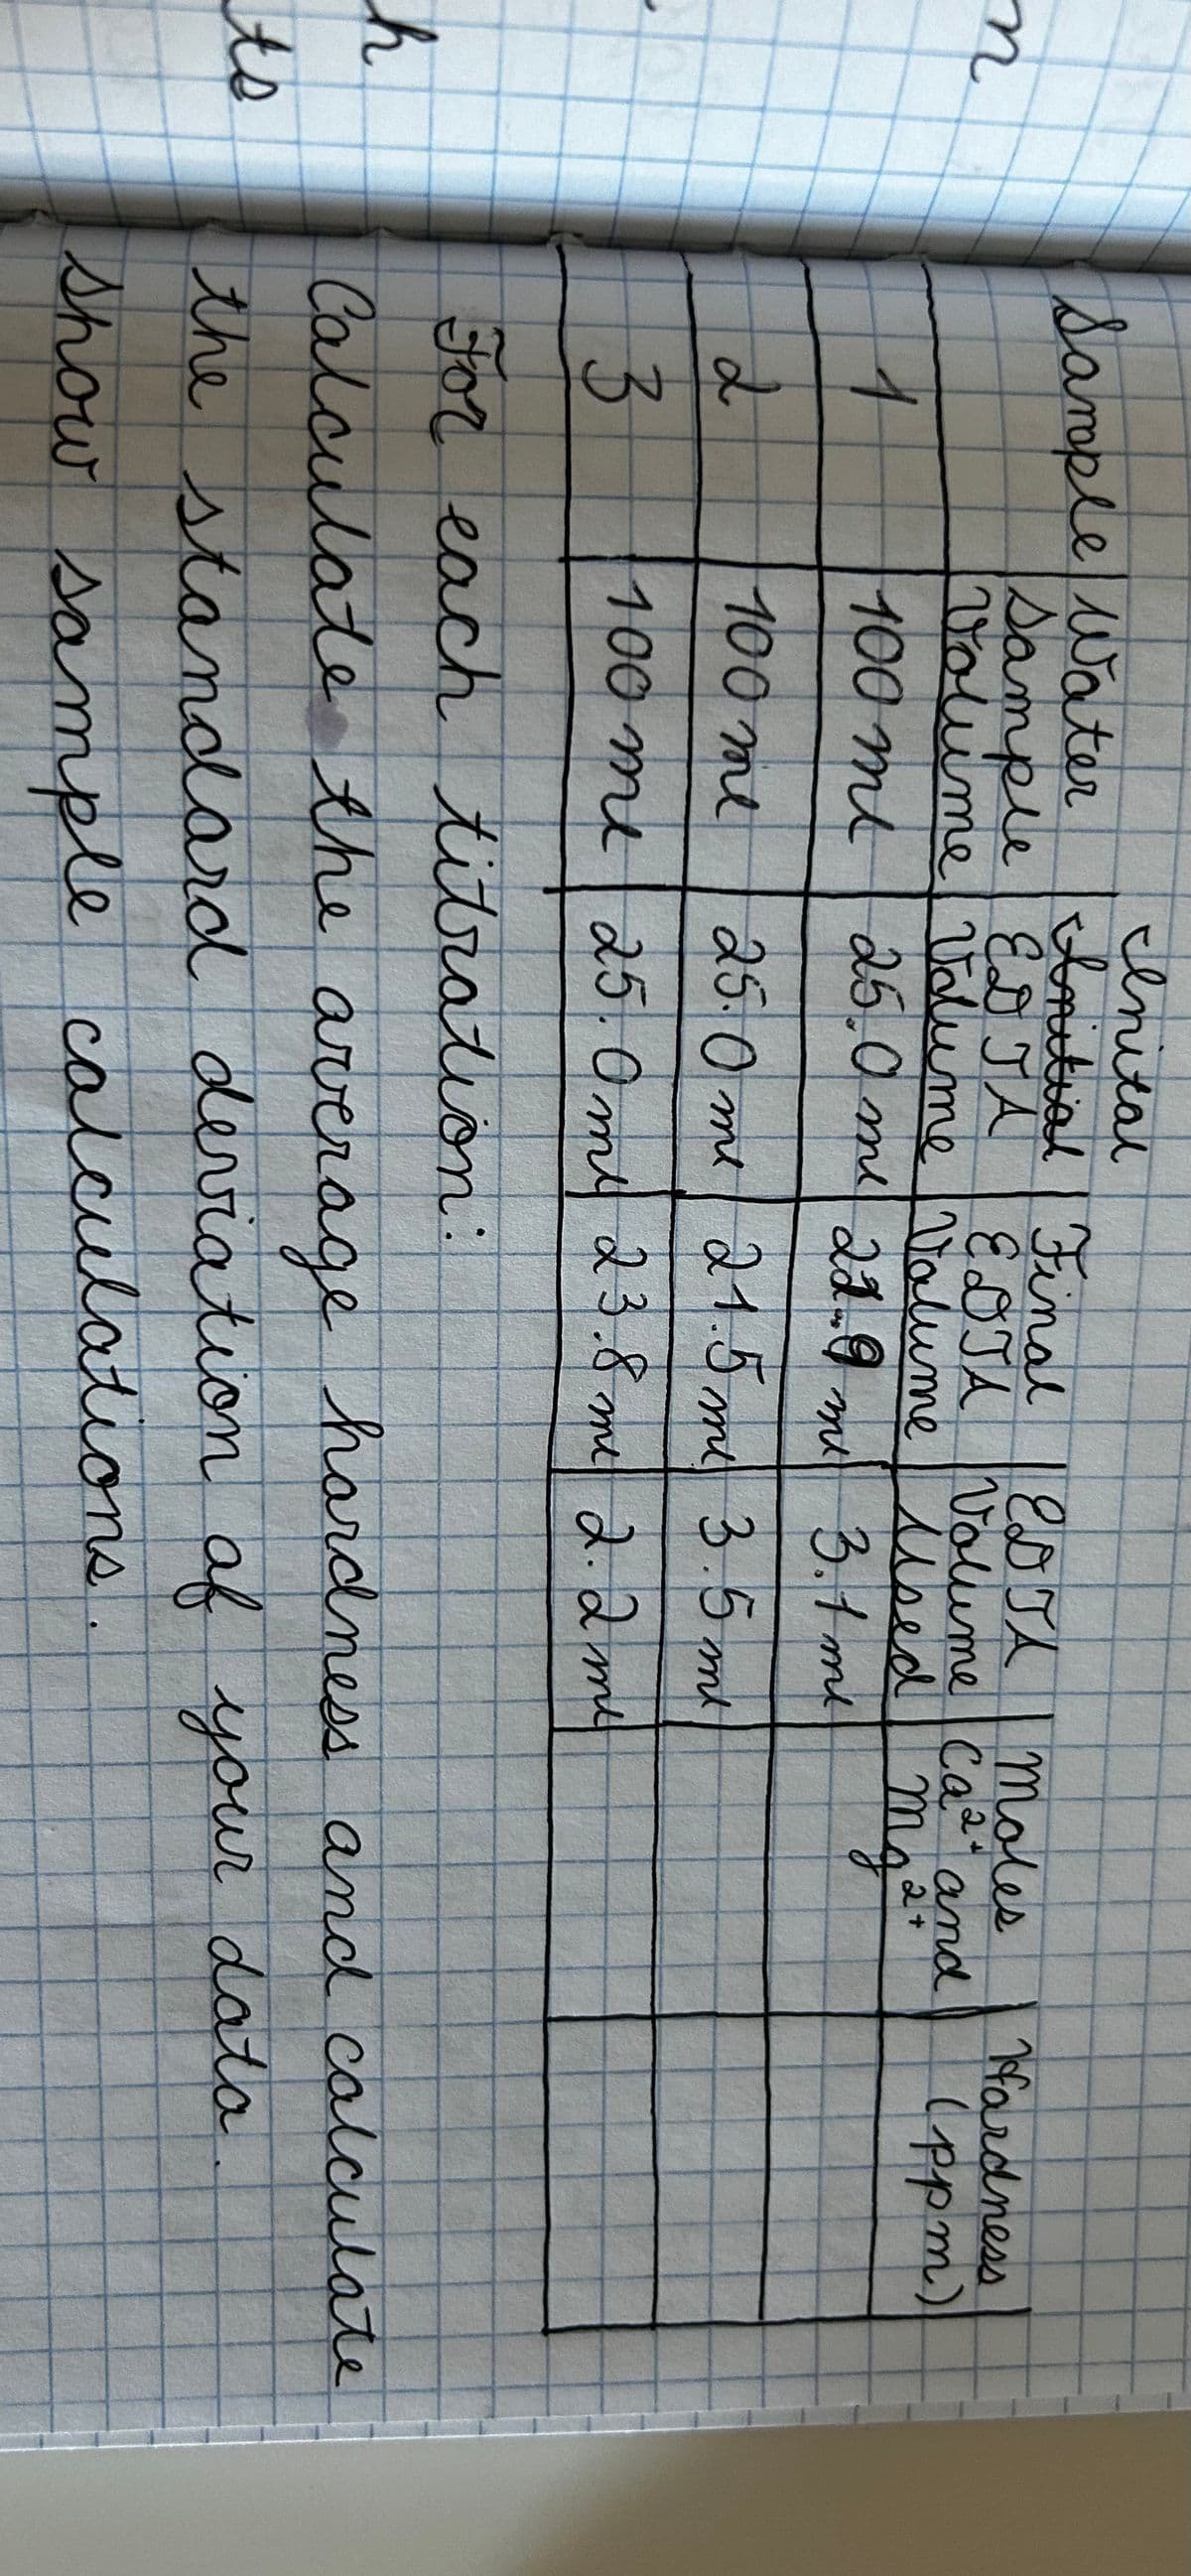 Sample | Water Sample Volume | Inital EDTA Volume | Final EDTA Volume | EDTA Volume Used | Moles Ca²⁺ and Mg²⁺ | Hardness (ppm)
1 | 100 ml | 25.0 ml | 21.9 ml | 3.1 ml
2 | 100 ml | 25.0 ml | 21.5 ml | 3.5 ml
3 | 100 ml | 25.0 ml | 23.8 ml | 2.2 ml
For each titration:
Calculate the average hardness and calculate
the standard deviation of your data.
Show sample calculations.